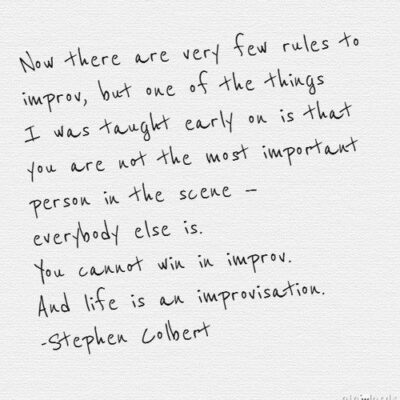 Now there are very few rules to
improv, but one of the things
I was taught early on is that
you are not the most important
person in the scene –
everybody else is.
You cannot win in improv.
And life is an improvisation.
-Stephen Colbert